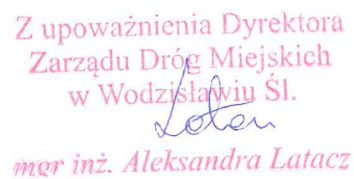 Z upoważnienia Dyrektora
Zarządu Dróg Miejskich
w Wodzisławiu Śl.
mgr inż. Aleksandra Latacz